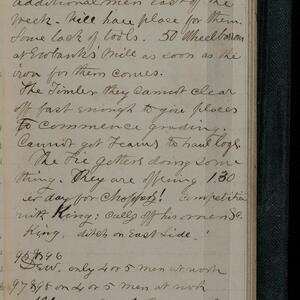 additional men east of the
week. Will have place for them.
Some lack of tools. 50 Wheelbarrows
at Ewbanks' Mill as soon as the
iron for them comes.
The Timber they cannot clear
off fast enough to give places
to commence grading.
Cannot get Teams to haul logs.
The Tie getters doing some
thing. They are offering 1.30
per day for Choppers! Competition
with King; calls off his men &c.
King, ditch on East Side.
95 & 96
S.W. only 4 or 5 men at work
97 & 98 4 or 5 men at work